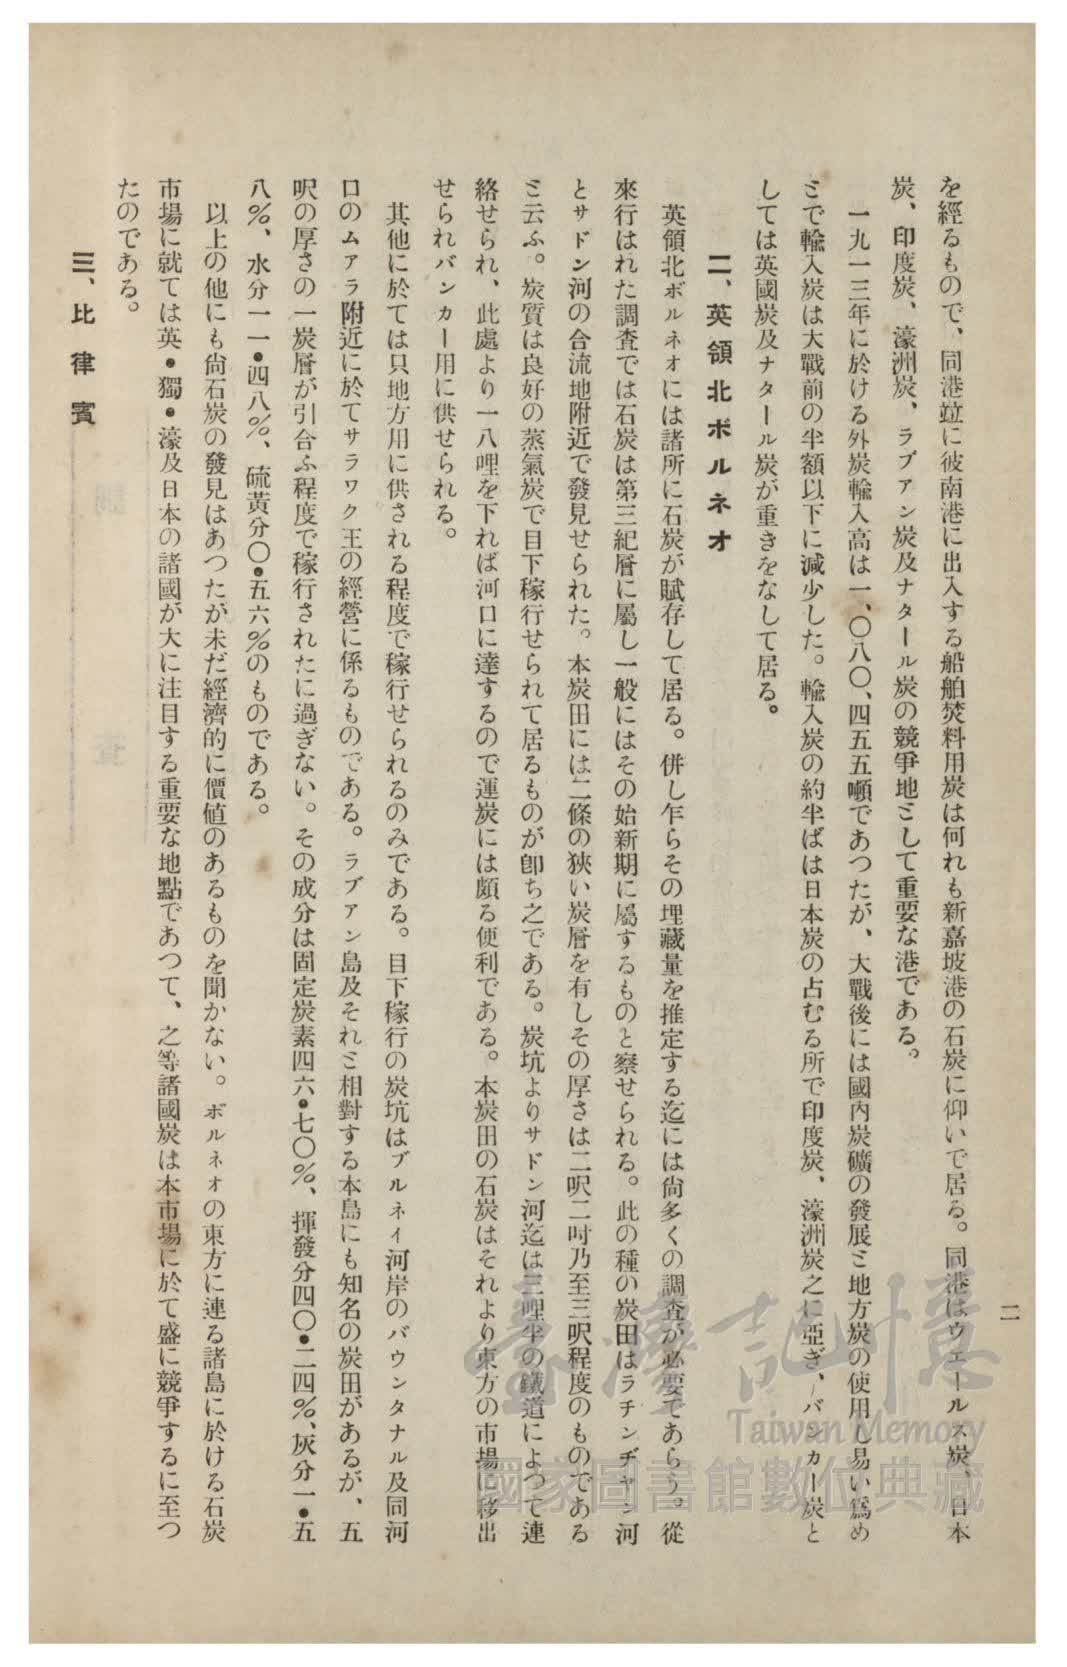 二
を經るもので、同港竝に彼南港に出入する船舶焚料用炭は何れも新嘉坡港の石炭に仰いで居る。同港はウェールス炭、日本
炭、印度炭、濠洲炭、ラブアン炭及ナタール炭の競爭地ミして重要な港である。
一九一三年に於ける外炭輸入高は一、〇八〇、四五五噸であつたが、大戰後には國內炭礦の發展ミ地方炭の使用し易い爲め
ミで輸入炭は大戰前の半額以下に減少した。輸入炭の約半ばは日本炭の占むる所で印度炭、濠洲炭之に亞ぎ、バンカー炭と
しては英國炭及ナタール炭が重きをなして居る。
二、英領北ボルネオ
英領北ボルネオには諸所に石炭が賦存して居る。併し乍らその埋藏量を推定する迄には尙多くの調査が必要であらう。從
來行はれた調査では石炭は第三紀層に屬し一般にはその始新期に屬するものと察せられる。此の種の炭田はラチンヂヤン河
とサドン河の合流地附近で發見せられた。本炭田には二條の狹い炭層を有しその厚さは二呎二吋乃至三呎程度のものである
ミ云ふ。炭質は良好の蒸氣炭で目下稼行せられて居るものが卽ち之である。炭坑よりサドン河迄は三哩半の鐵道によつて連
絡せられ、此處より一八哩を下れば河口に達するので運炭には頗る便利である。本炭田の石炭はそれより東方の市場に移出
せられバンカー用に供せられる。
其他に於ては只地方用に供される程度で稼行せられるのみである。目下稼行の炭坑はブルネイ河岸のバウンタナル及同河
口のムアラ附近に於てサラワク王の經營に係るものである。ラブアン島及それミ相對する本島にも知名の炭田があるが、五
呎の厚さの一炭層が引合ふ程度で稼行されたに過ぎない。その成分は固定炭素四六•七〇%、揮發分四〇•二四%、灰分一•五
八%、水分一一•四八%、硫黃分〇•五六%のものである。
以上の他にも尙石炭の發見はあつたが未だ經濟的に價値のあるものを聞かない。ボルネオの東方に連る諸島に於ける石炭
市場に就ては英•獨•濠及日本の諸國が大に注目する重要な地點であつて、之等諸國炭は本市場に於て盛に競爭するに至つ
たのである。
三、比律賓
臺灣記憶
Taiwan Memory
國家圖書館數位典藏